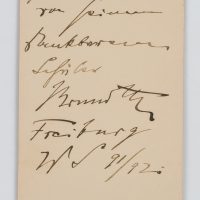 von seinem
dankbaren
Schüler
Freiburg
WS 91/92.